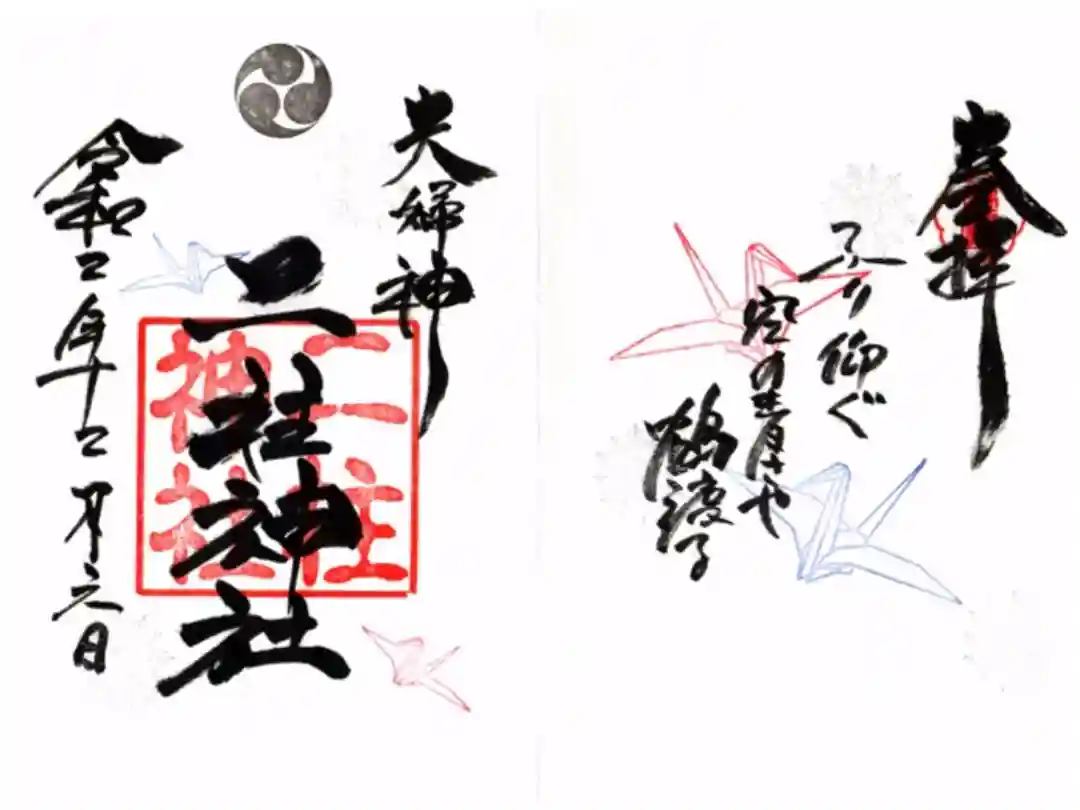 奉拝
ふり仰ぐ
空の青さや
鶴渡る
夫婦神
二柱神社
二柱
神社
令和二年十二月六日